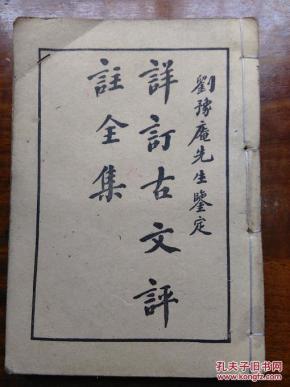 劉豫庵先生鑒定
詳訂古文評
註全集
孔夫子旧书网
www.kongfz.com